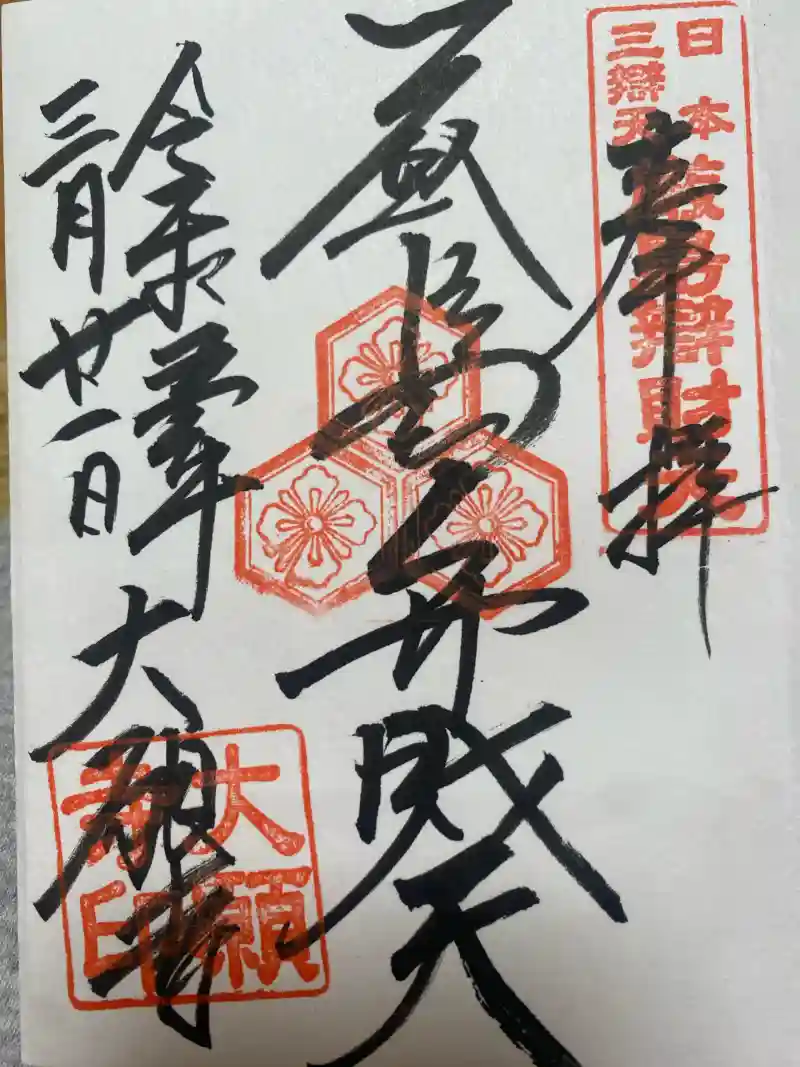 日本
三辯天
嚴島辯財天
奉拝
厳島弁財天
令和 年
三月廿一日
大願寺
大願
寺印